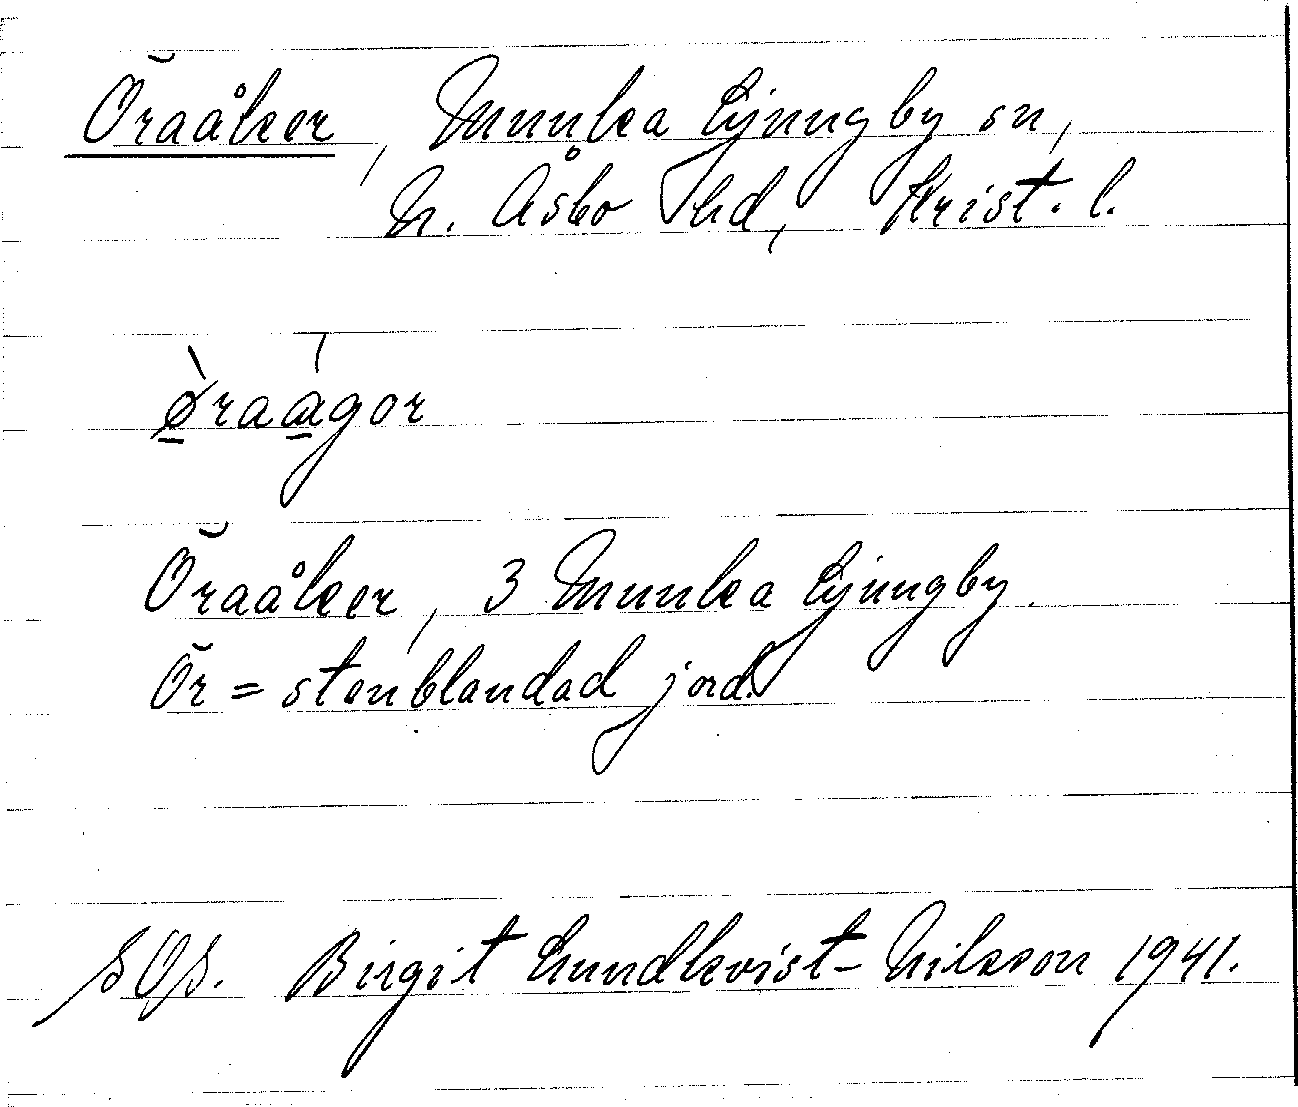 Öraåker, Munka Ljungby sn,
N. Åsbo hd, Krist. l.
ø̀raágor
Öraåker, 3 Munka Ljungby.
Ör = stenblandad jord.
SOS. Birgit Lundkvist-Nilsson 1941.